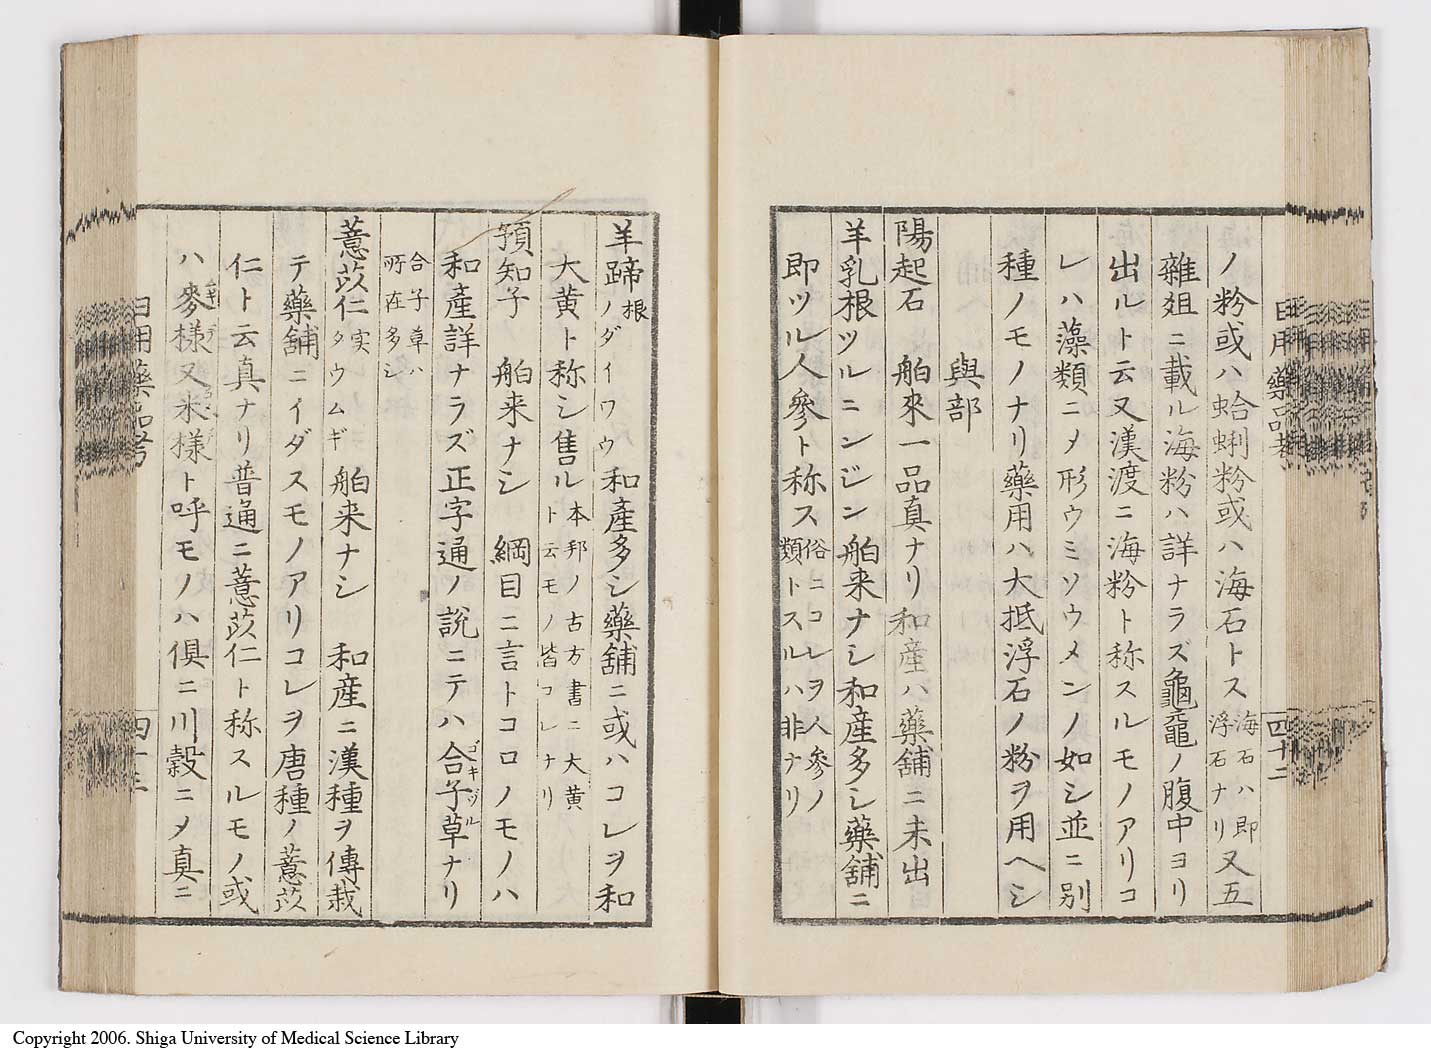 日用藥品考 四十二
ノ粉或ハ蛤蜊粉或ハ海石トス海石ハ即浮石ナリ又五
雜俎ニ載ル海粉ハ詳ナラズ龜鼊ノ腹中ヨリ
出ルト云又漢渡ニ海粉ト称スルモノアリコ
レハ藻類ニメ形ウミソウメンノ如シ並ニ別
種ノモノナリ藥用ハ大抵浮石ノ粉ヲ用ヘシ
與部
陽起石 舶來一品真ナリ和産ハ藥舖ニ未出
羊乳根ツルニンジン舶来ナシ和産多シ藥舖ニ
即ツル人參ト称ス俗ニコレヲ人參ノ類トスルハ非ナリ
羊蹄根ノダイワウ和産多シ藥舖ニ或ハコレヲ和
大黄ト称シ售ル本邦ノ古方書ニ大黄ト云モノ皆コレナリ
預知子 舶来ナシ 綱目ニ言トコロノモノハ
和産詳ナラズ正字通ノ説ニテハ合子草ナリ
ゴキヅル
合子草ハ所在多シ
薏苡仁実タウムギ舶来ナシ 和産ニ漢種ヲ傳栽
テ藥舖ニイダスモノアリコレヲ唐種ノ薏苡
仁ト云真ナリ普通ニ薏苡仁ト称スルモノ或
ハ麥様又米様ト呼モノハ倶ニ川穀ニメ真ニ
日用藥品考 四十三
Copyright 2006. Shiga University of Medical Science Library